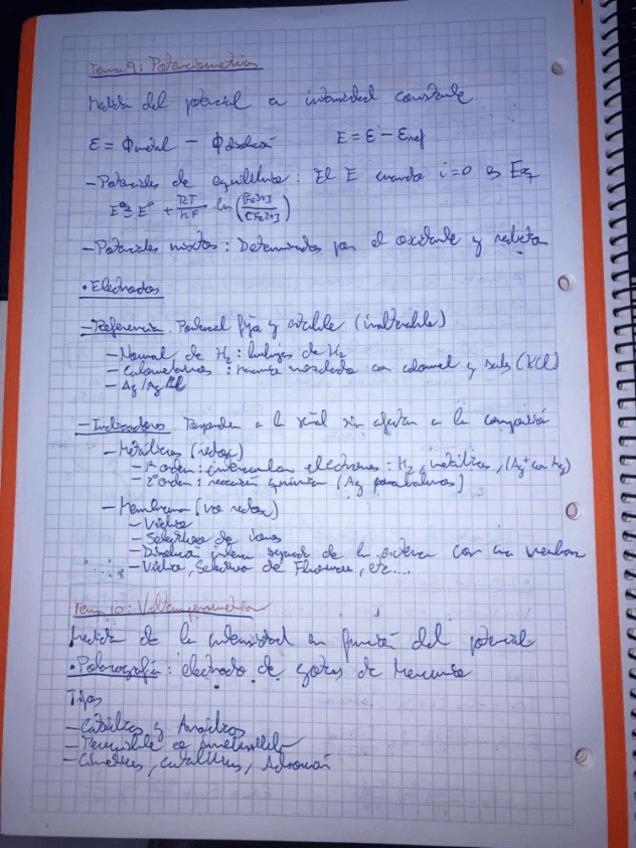 Tema 9: Potenciometrías
Medida del potencial a intensidad constante
ε = Φmetal − Φdisolución E = ε − εref
- Potenciales de equilibrio: El E cuando i=0 es Eeq
Eeq = E° + RT/nF ln([Fe3+]/[Fe2+])
- Potenciales mixtos: Determinados por el oxidante y reductor
• Electrodos
- Referencia. Potencial fijo y estable (inalterable)
- Normal de H2: burbujas de H2
- Calomelanos: mercurio mezclado con calomel y sales (KCl)
- Ag/AgCl
- Indicadores Responden a la señal sin afectar a la composición
- Metálicos (redox)
- 1er orden: intercambian electrones: H2, metálicos, (Ag+ con Ag)
- 2º orden: reacción química (Ag para haluros)
- Membrana (no redox)
- Vidrio
- Selectivos de iones
- Disolución interna separada de la externa con una
- Vidrio, Selectivo de Fluoruro, etc....
Tema 10: Voltamperometría
Medida de la intensidad en función del potencial
• Polarografía: electrodo de gotas de Mercurio
Tipos
- Catódicos y Anódicos
- Reversible
- Cinéticas, catalíticas, Adsorción